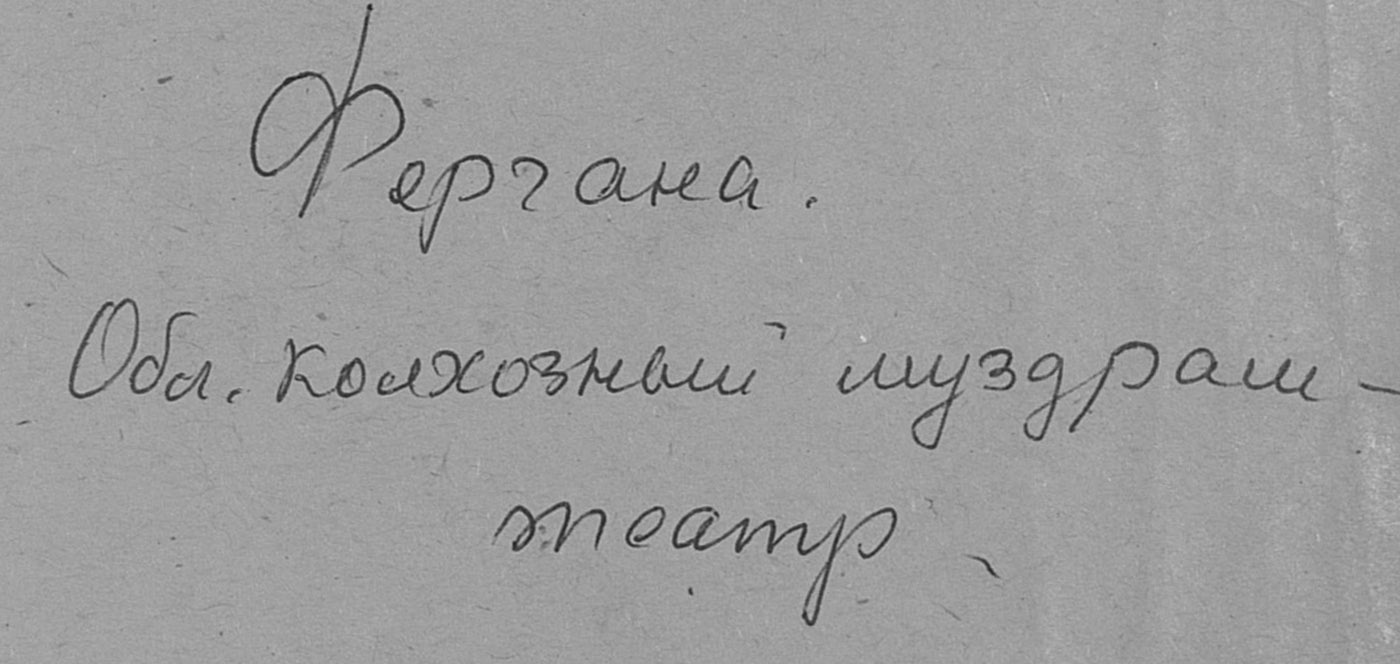 Фергана.
Обл. колхозный муздрам-
театр